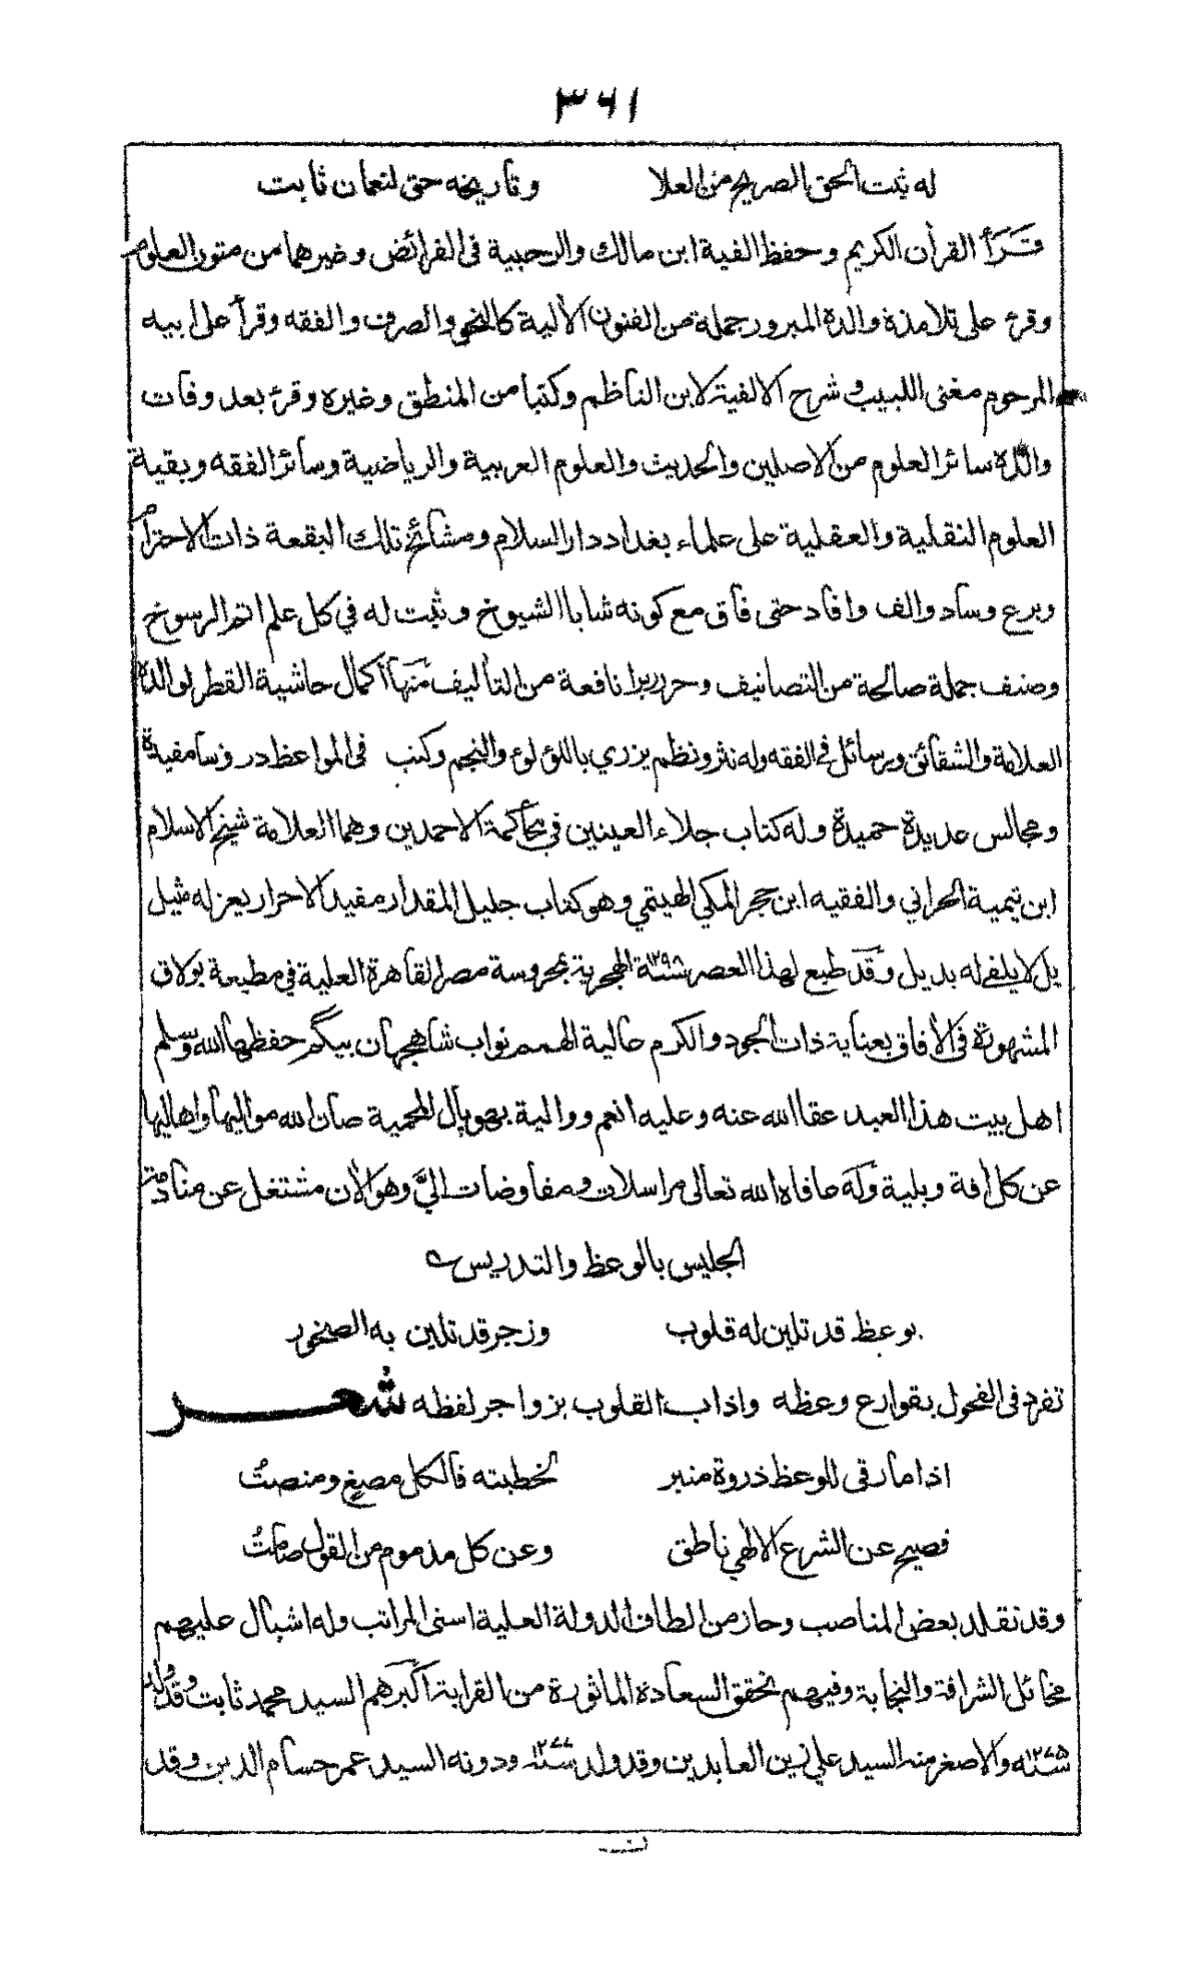 ٣٦١
له ثبت الحق الصريح من العلا وتاريخه حق لنعمان ثابت
قَرَأَ القرأن الكريم وحفظ الفية ابن مالك والرحبية فى الفرائض وغيرهما من متون العلوم
وقرء على تلامذة والده المبرور جملة من الفنون الألية كالنحو والصرف والفقه وقرأ على ابيه
المرحوم مغنى اللبيب وشرح الالفية لابن الناظم وكتبا من المنطق وغيره وقرء بعد وفات
والده سائر العلوم من الاصلين والحديث والعلوم العربية والرياضية وسائر الفقه وبقية
العلوم النقلية والعقلية على علماء بغداد دار السلام ومشائخ تلك البقعة ذات الاحترام
وبرع وساد والف وافاد حتى فاق مع كونه شابا الشيوخ وثبت له في كل علم اتم الرسوخ
وصنف جملة صالحة من التصانيف وحرر زبرا نافعة من التأليف منها اكمال حاشية القطر لوالده
العلامة والشقائق ورسائل فى الفقه وله نثر ونظم يزري باللؤلوء والنجم وكتب فى المواعظ دروسا مفيدة
ومجالس عديدة حميدة وله كتاب جلاء العينين في محاكمة الاحمدين وهما العلامة شيخ الاسلام
ابن تيمية الحراني والفقيه ابن حجر المكي الهيتمي وهو كتاب جليل المقدار مفيد الاحرار يعز له مثيل
بل لا يلفے له بديل وقد طبع لهذا العصر سنة ١٢٩٨ الهجرية بمحروسة مصر القاهرة العلية في مطبعة بولاق
المشهورة فى الأفاق بعناية ذات الجود والكرم عالية الهمم نواب شاهجهان بيگم حفظها الله وسلم
اهل بيت هذا العبد عفا الله عنه وعليه انعم ووالية بهوپال المحمية صان الله مواليها واهاليها
عن كل أفة وبلية وله عافاه الله تعالى مراسلات ومفاوضات اليَّ وهو الأن مشتغل عن منادمة
الجليس بالوعظ والتدريس ے
بوعظ قد تلين له قلوب وزجر قد تلين به الصخور
تفرد فى الفحول بقوارع وعظه واذاب القلوب بزواجر لفظه شعر
اذا ما رقى للوعظ ذروة منبر لخطبته فالكل مصغٍ ومنصتُ
فصيح عن الشرع الالهي ناطق وعن كل مذموم من القول صامتُ
وقد تقلد بعض المناصب وحاز من الطاف الدولة العلية اسنى المراتب وله اشبال عليهم
مخائل الشرافة والنجابة وفيهم تحقق السعادة الماثورة من القرابة اكبرهم السيد محمد ثابت وقد ولد
سنة ١٢٧٥ والاصغر منه السيد علي زين العابدين وقد ولد سنة ١٢٧٧ ودونه السيد عمر حسام الدين وقد